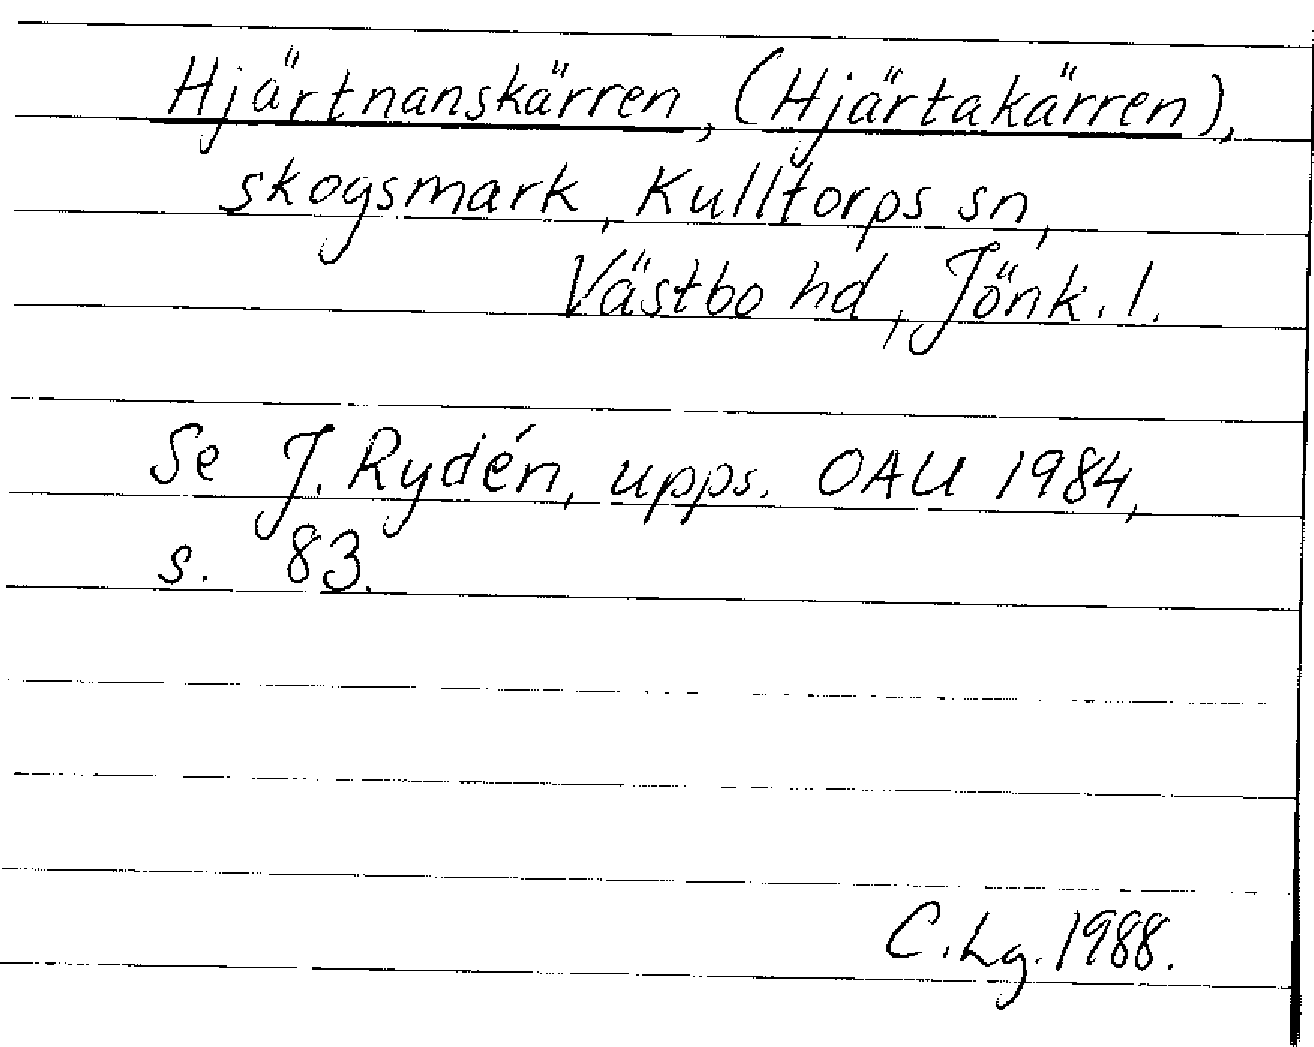 Hjärtnanskärren, (Hjärtakärren),
skogsmark, Kulltorps sn,
Västbo hd, Jönk. l.
Se J. Rydén, upps. OAU 1984,
s. 83.
C. Lg. 1988.